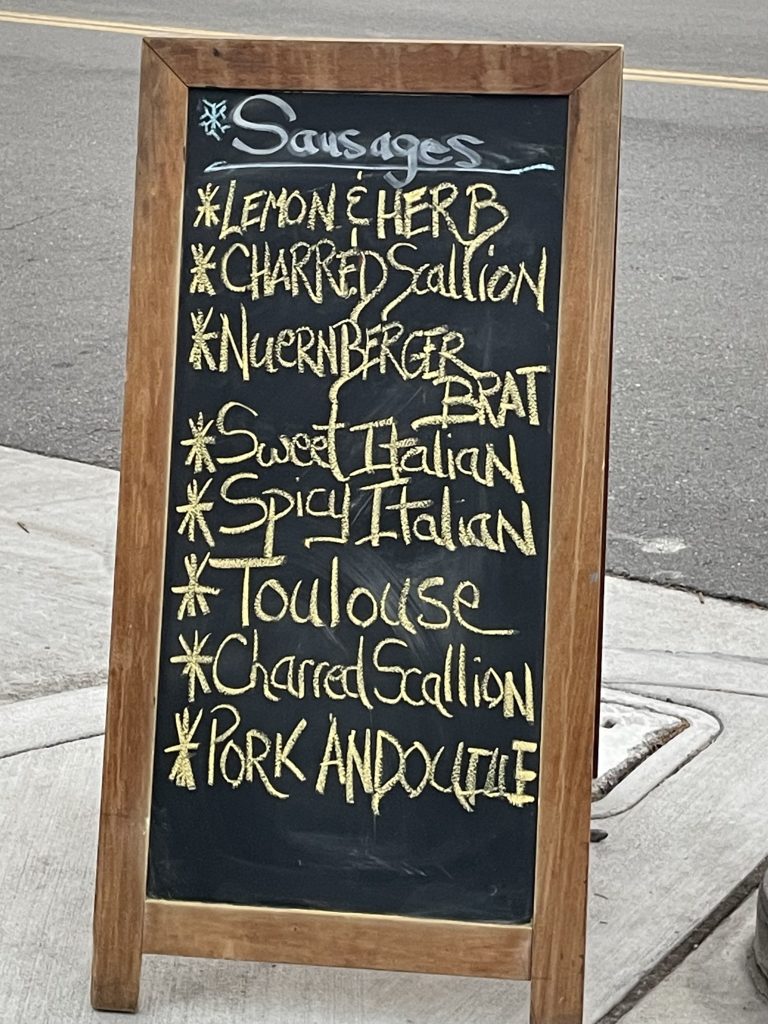 *Sausages
*LEMON & HERB
*CHARRED Scallion
*NUERNBERGER
BRAT
*Sweet Italian
*Spicy Italian
*Toulouse
*Charred Scallion
*PORK ANDOUILLE